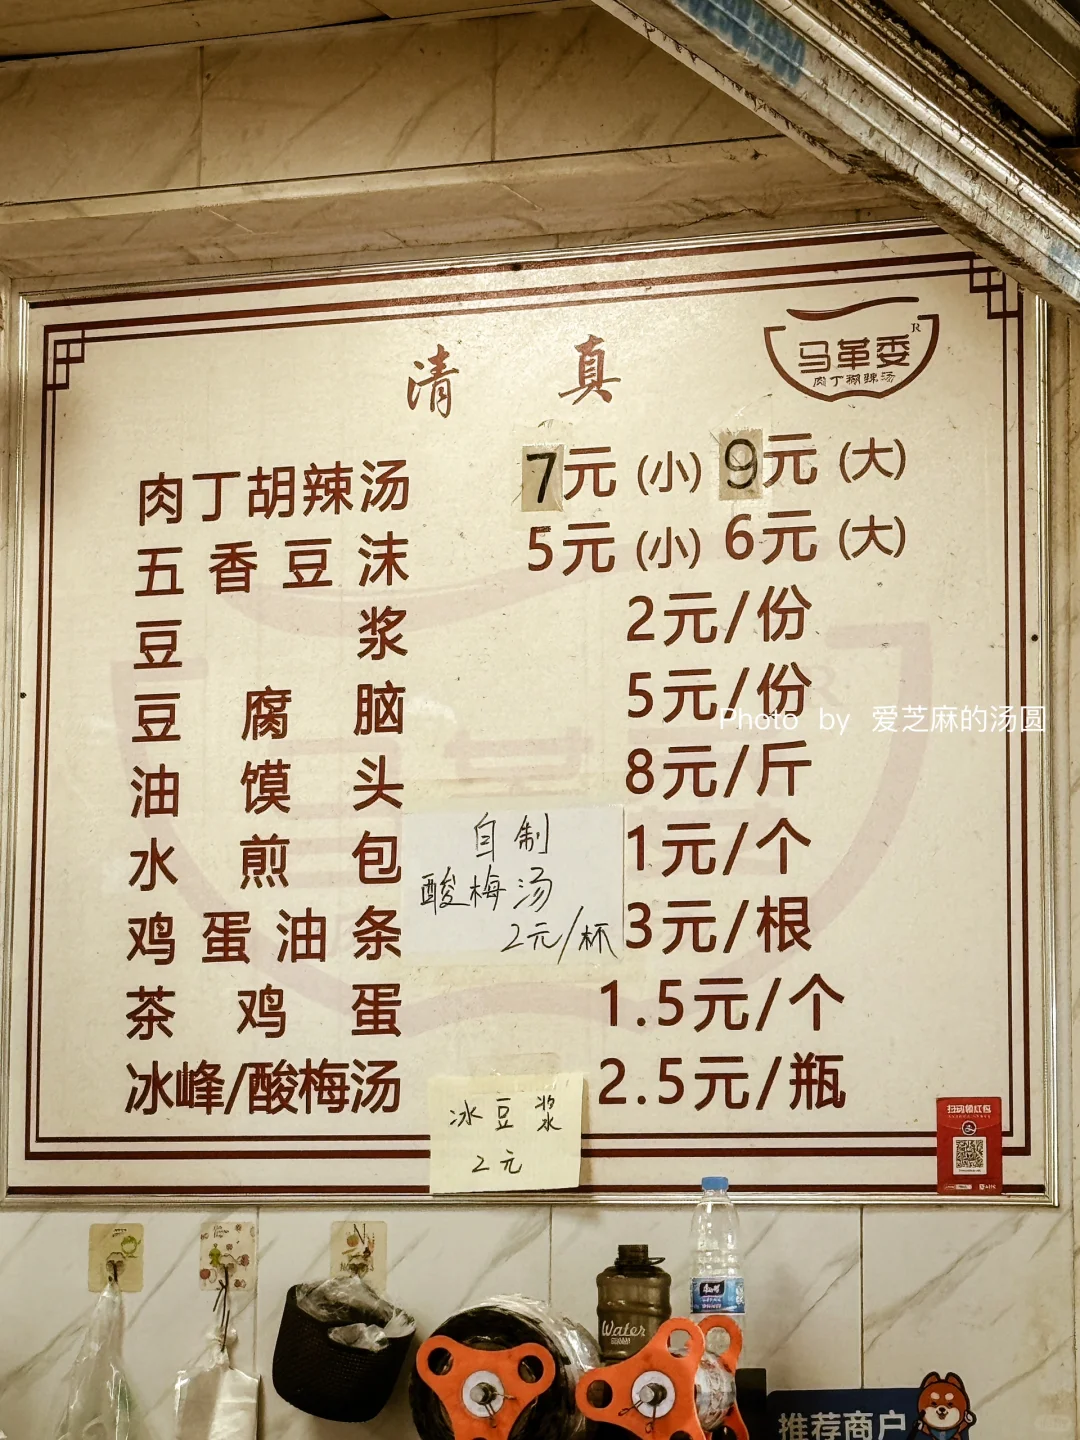 清 真
马革委
R
肉丁糊辣汤
肉丁胡辣汤 7元 (小) 9元 (大)
五香豆沫 5元 (小) 6元 (大)
豆浆 2元/份
豆腐脑 5元/份
Photo by 爱芝麻的汤圆
油馍头 8元/斤
水煎包 1元/个
自制
酸梅汤
2元/杯
鸡蛋油条 3元/根
茶鸡蛋 1.5元/个
冰峰/酸梅汤 2.5元/瓶
冰豆浆
2元
扫码领红包
Water
推荐商户